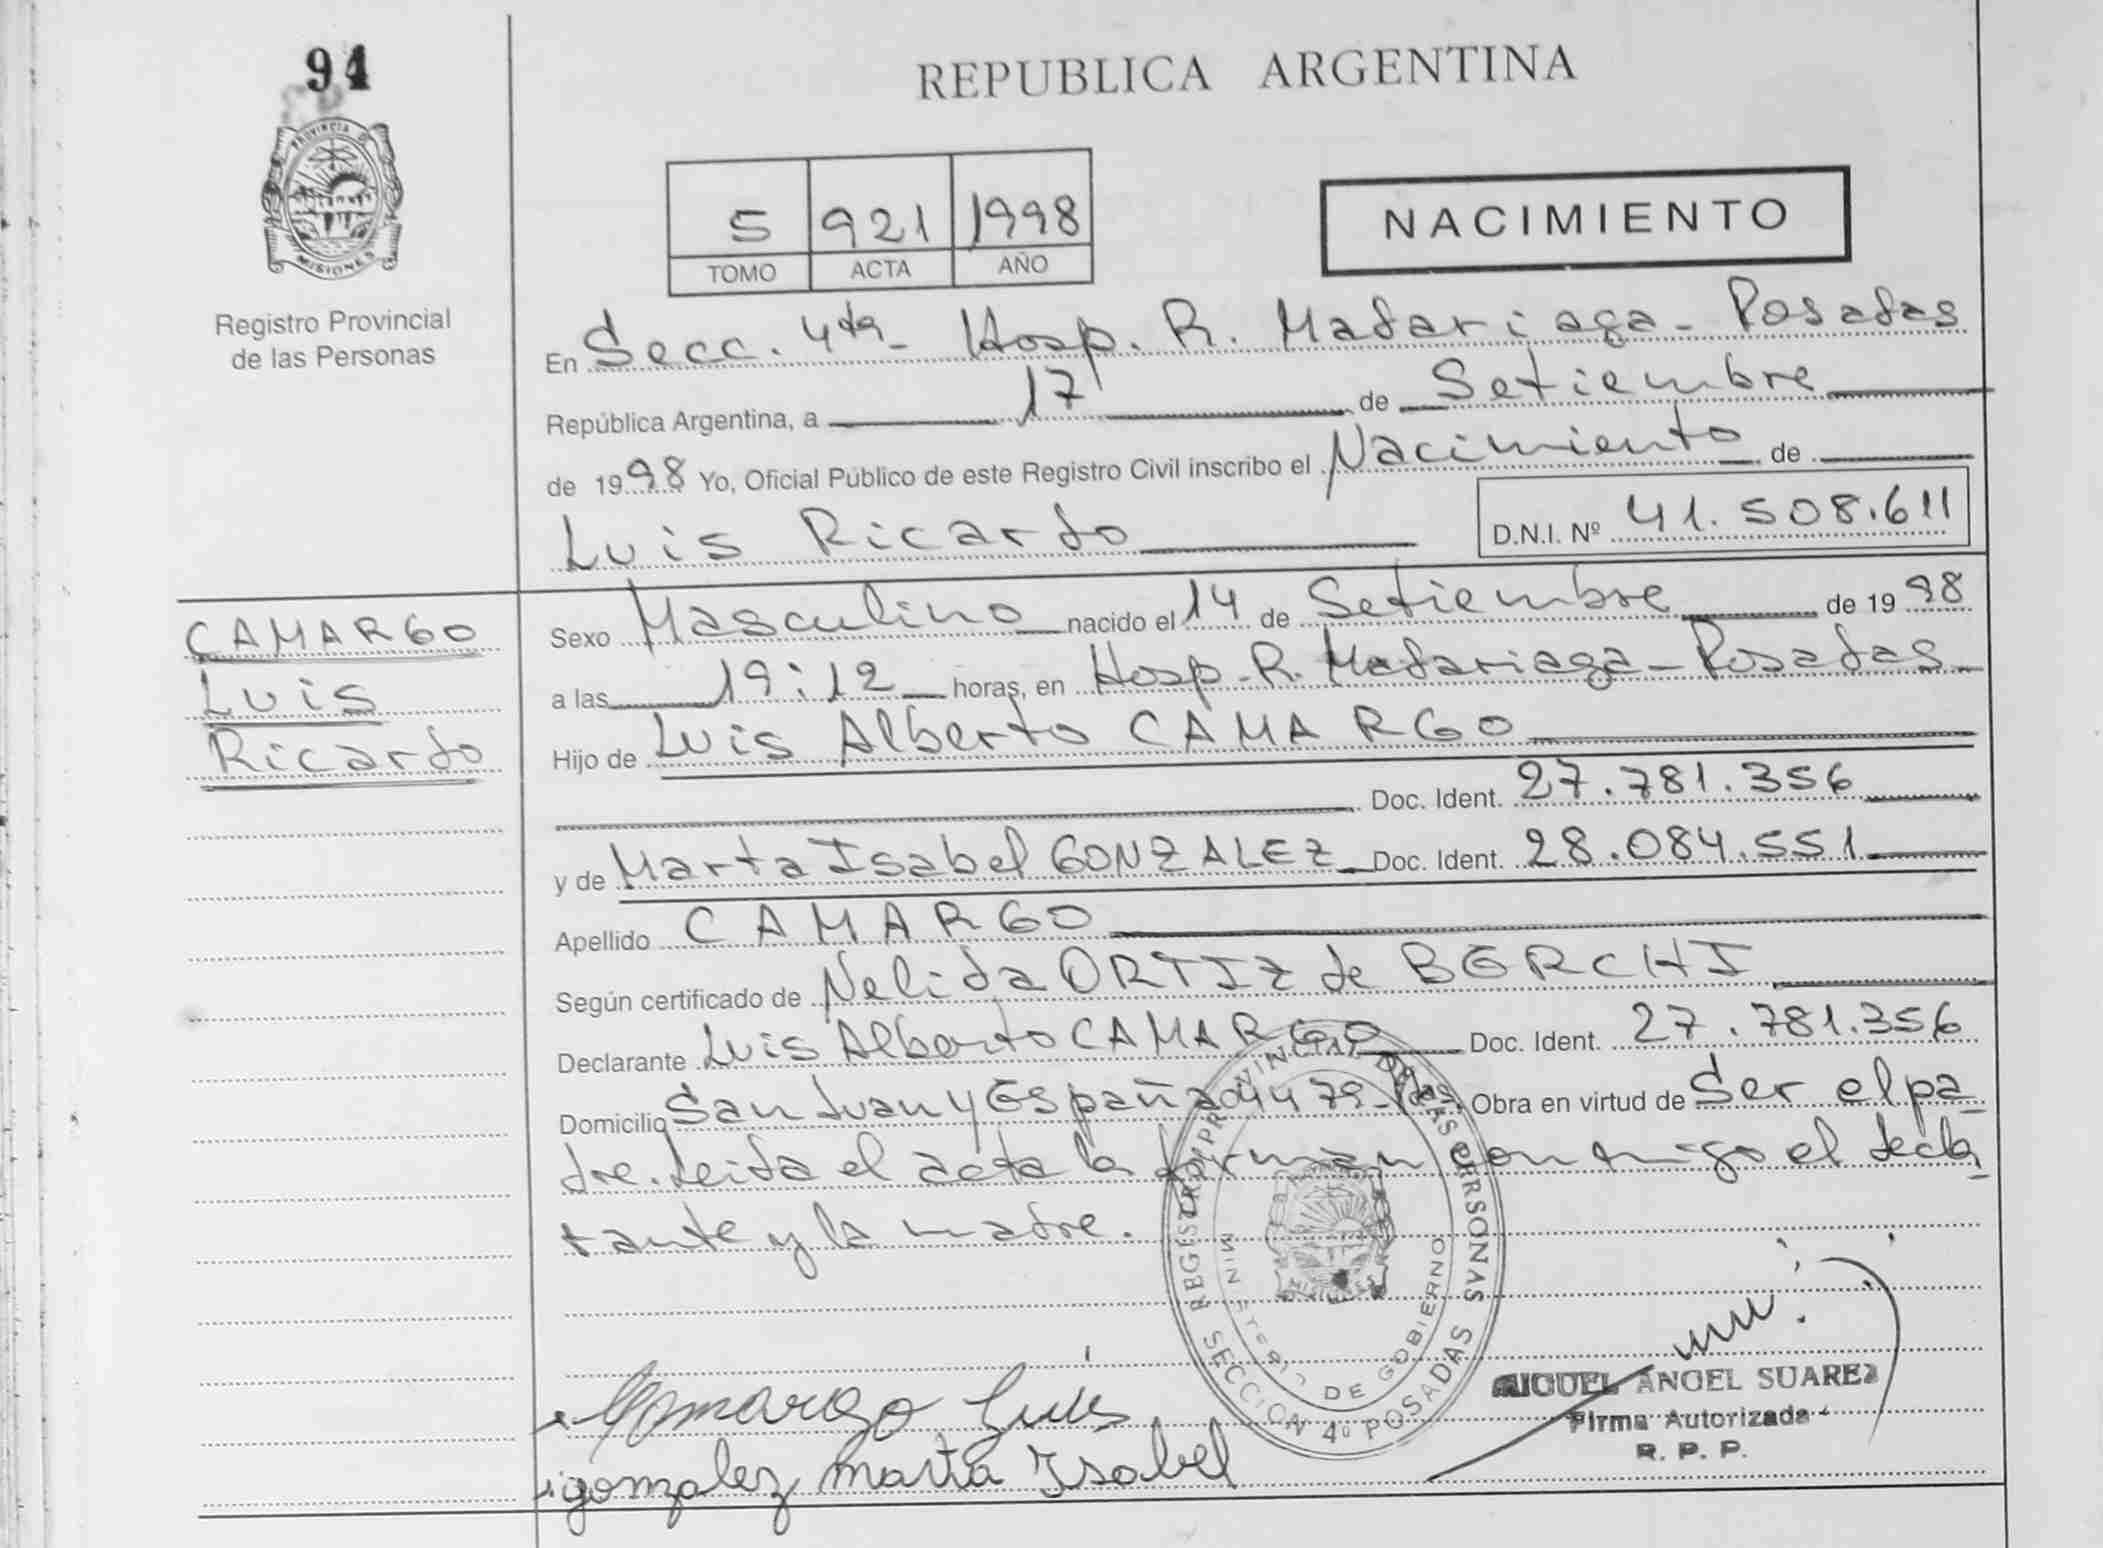 94
PROVINCIA D
MISIONES
Registro Provincial
de las Personas
REPUBLICA ARGENTINA
5 921 1998
TOMO ACTA AÑO
NACIMIENTO
En Secc. 4ta - Hosp. R. Madariaga - Posadas
República Argentina, a 17 de Setiembre
de 1998 Yo, Oficial Público de este Registro Civil inscribo el Nacimiento de
Luis Ricardo D.N.I. Nº 41.508.611
CAMARGO
Luis
Ricardo
Sexo Masculino nacido el 14 de Setiembre de 1998
a las 19:12 horas, en Hosp. R. Madariaga - Posadas
Hijo de Luis Alberto CAMARGO
Doc. Ident. 27.781.356
y de Marta Isabel GONZALEZ Doc. Ident. 28.084.551
Apellido CAMARGO
Según certificado de Nelida ORTIZ de BERCHI
Declarante Luis Alberto CAMARGO Doc. Ident. 27.781.356
Domicilio San Juan y España 4479 - Obra en virtud de Ser el pa
dre. Leida el acta la firman conmigo el decla
rante y la madre.
REGISTRO PROVINCIAL DE LAS PERSONAS
MINISTERIO DE GOBIERNO
SECCION 4º POSADAS
Camargo Luis
gonzalez marta Isabel
MIGUEL ANGEL SUAREZ
Firma Autorizada
R. P. P.